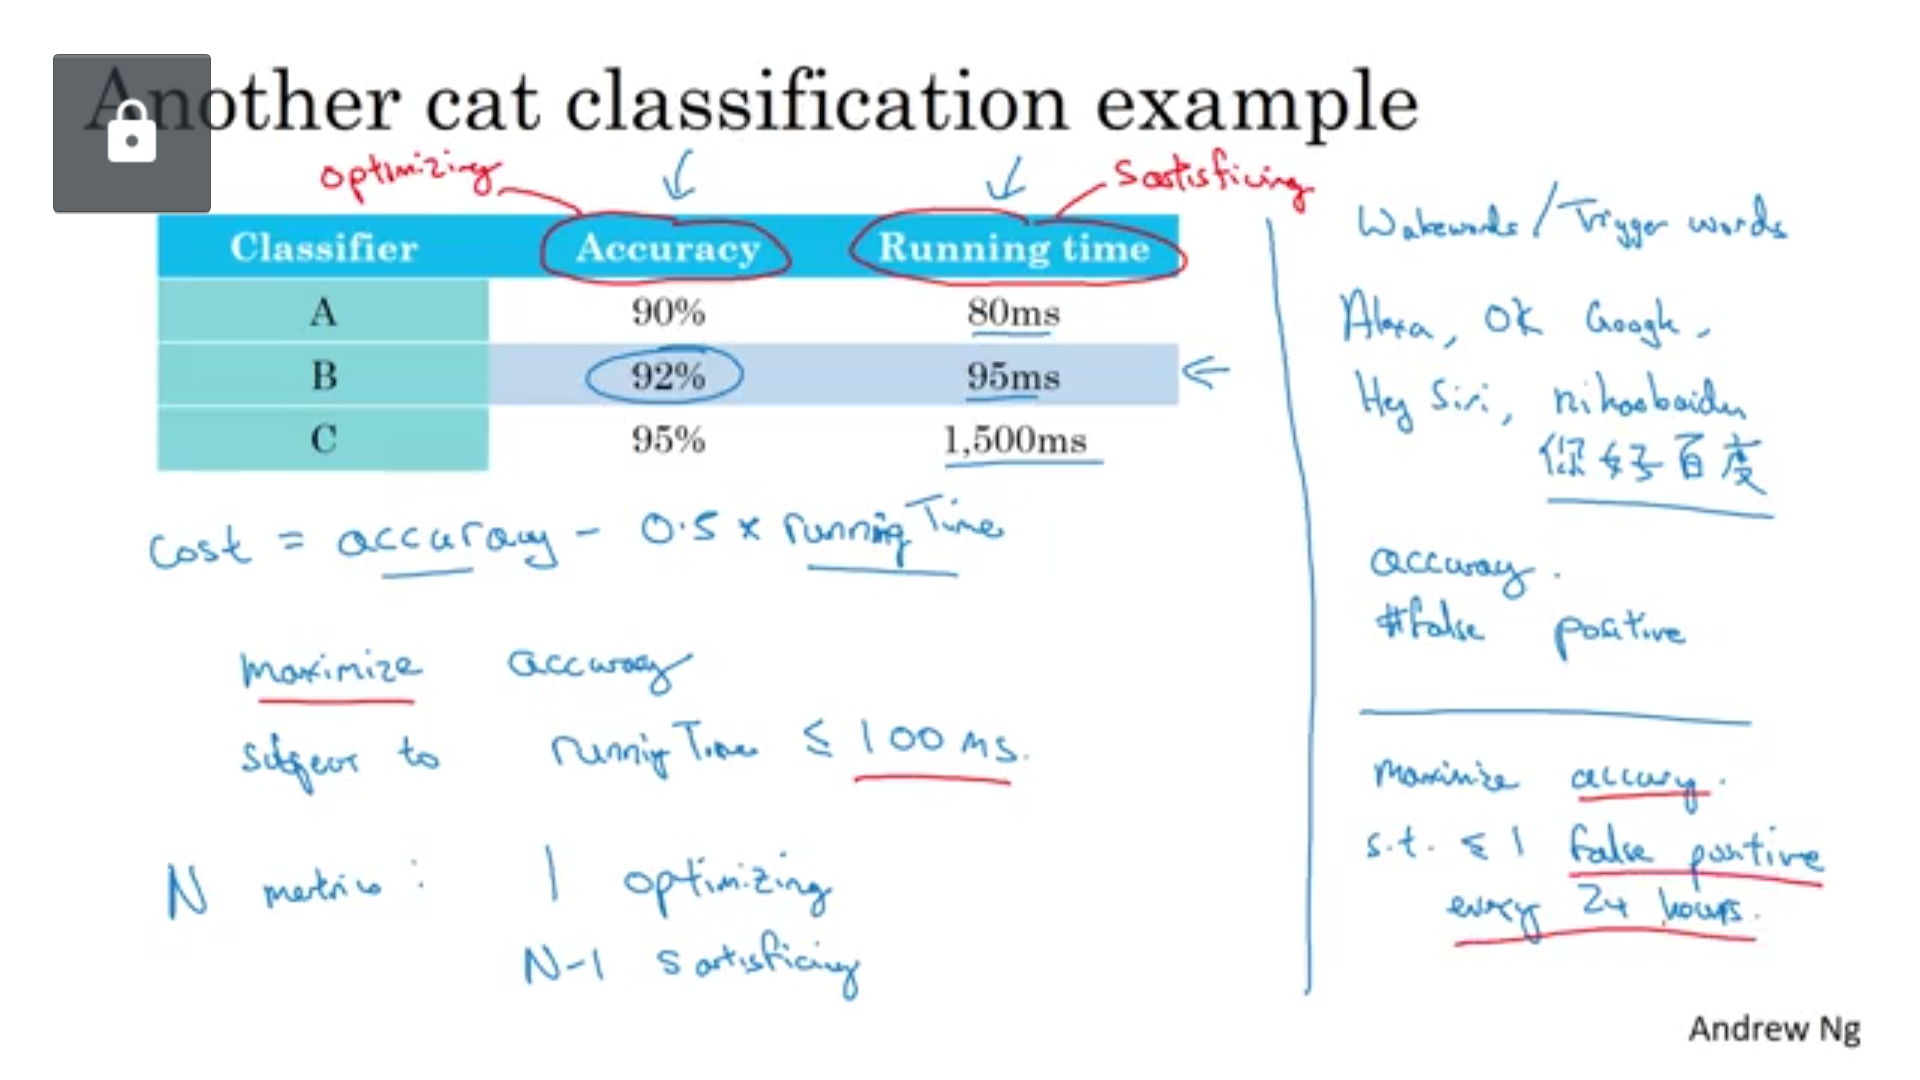 Another cat classification example
optimizing
Satisficing
Classifier Accuracy Running time
A 90% 80ms
B 92% 95ms
C 95% 1,500ms
cost = accuracy - 0.5 x running Time
maximize accuracy
subject to running Time ≤ 100 ms.
N metrics: 1 optimizing
N-1 satisficing
Wakewords / Trigger words
Alexa, OK Google,
Hey Siri, nihaobaidu
你好百度
accuracy.
#false positive
Maximize accuracy.
s.t. ≤ 1 false positive
every 24 hours.
Andrew Ng